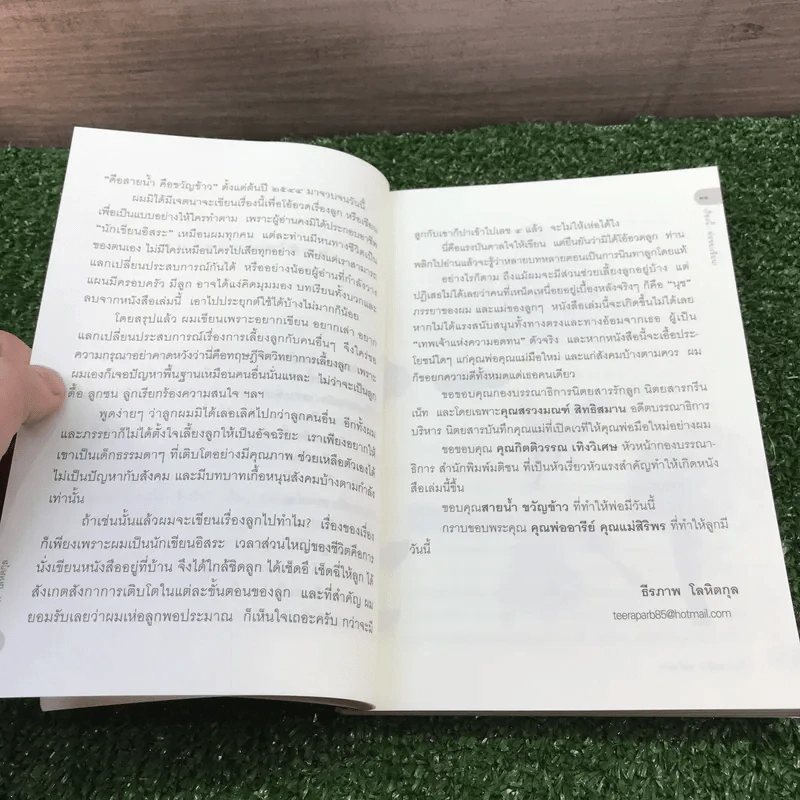 "คือสายน้ำ คือขวัญข้าว" ตั้งแต่ต้นปี ๒๕๔๔ มาจวบจนวันนี้
ผมมิได้มีเจตนาจะเขียนเรื่องนี้เพื่อโอ้อวดเรื่องลูก หรือเขียน
เพื่อเป็นแบบอย่างให้ใครทำตาม เพราะผู้อ่านคงมิได้ประกอบอาชีพ
"นักเขียนอิสระ" เหมือนผมทุกคน แต่ละท่านมีหนทางชีวิตเป็น
ของตนเอง ไม่มีใครเหมือนใครไปเสียทุกอย่าง เพียงแต่เราสามารถ
แลกเปลี่ยนประสบการณ์กันได้ หรืออย่างน้อยผู้อ่านที่กำลังวาง
แผนมีครอบครัว มีลูก อาจได้แง่คิดมุมมอง บทเรียนทั้งบวกและ
ลบจากหนังสือเล่มนี้ เอาไปประยุกต์ใช้ได้บ้างไม่มากก็น้อย
โดยสรุปแล้ว ผมเขียนเพราะอยากเขียน อยากเล่า อยาก
แลกเปลี่ยนประสบการณ์เรื่องการเลี้ยงลูกกับคนอื่นๆ จึงใคร่ขอ
ความกรุณาอย่าคาดหวังว่านี่คือทฤษฎีจิตวิทยาการเลี้ยงลูก เพราะ
ผมเองก็เจอปัญหาพื้นฐานเหมือนคนอื่นนั่นแหละ ไม่ว่าจะเป็นลูก
ดื้อ ลูกซน ลูกเรียกร้องความสนใจ ฯลฯ
พูดง่ายๆ ว่าลูกผมมิได้เลอเลิศไปกว่าลูกคนอื่น อีกทั้งผม
และภรรยาก็ไม่ได้ตั้งใจเลี้ยงลูกให้เป็นอัจฉริยะ เราเพียงอยากให้
เขาเป็นเด็กธรรมดาๆ ที่เติบโตอย่างมีคุณภาพ ช่วยเหลือตัวเองได้
ไม่เป็นปัญหากับสังคม และมีบทบาทเกื้อหนุนสังคมบ้างตามกำลัง
เท่านั้น
ถ้าเช่นนั้นแล้วผมจะเขียนเรื่องลูกไปทำไม? เรื่องของเรื่อง
ก็เพียงเพราะผมเป็นนักเขียนอิสระ เวลาส่วนใหญ่ของชีวิตคือการ
นั่งเขียนหนังสืออยู่ที่บ้าน จึงได้ใกล้ชิดลูก ได้เช็ดอึ เช็ดฉี่ให้ลูก ได้
สังเกตสังกาการเติบโตในแต่ละขั้นตอนของลูก และที่สำคัญ ผม
ยอมรับเลยว่าผมเห่อลูกพอประมาณ ก็เห็นใจเถอะครับ กว่าจะมี
ลูกกับเขาก็ปาเข้าไปเลข ๔ แล้ว จะไม่ให้เห่อได้ไง
นี่คือแรงบันดาลใจให้เขียน แต่ยืนยันว่ามิได้โอ้อวดลูก ท่าน
พลิกไปอ่านแล้วจะรู้ว่าหลายบทหลายตอนเป็นการนินทาลูกโดยแท้
อย่างไรก็ตาม ถึงแม้ผมจะมีส่วนช่วยเลี้ยงลูกอยู่บ้าง แต่
ปฏิเสธไม่ได้เลยว่าคนที่เหน็ดเหนื่อยอยู่เบื้องหลังจริงๆ ก็คือ "นุช"
ภรรยาของผม และแม่ของลูกๆ หนังสือเล่มนี้จะเกิดขึ้นไม่ได้เลย
หากไม่ได้แรงสนับสนุนทั้งทางตรงและทางอ้อมจากเธอ ผู้เป็น
"เทพเจ้าแห่งความอดทน" ตัวจริง และหากหนังสือนี้จะเอื้อประ-
โยชน์ใดๆ แก่คุณพ่อคุณแม่มือใหม่ และแก่สังคมบ้างตามควร ผม
ก็ขอยกความดีทั้งหมดแด่เธอคนเดียว
ขอขอบคุณกองบรรณาธิการนิตยสารรักลูก นิตยสารกรีน
เน็ท และโดยเฉพาะคุณสรวงมณฑ์ สิทธิสมาน อดีตบรรณาธิการ
บริหาร นิตยสารบันทึกคุณแม่ที่เปิดเวทีให้คุณพ่อมือใหม่อย่างผม
ขอขอบคุณ คุณกิตติวรรณ เทิงวิเศษ หัวหน้ากองบรรณา-
ธิการ สำนักพิมพ์มติชน ที่เป็นหัวเรี่ยวหัวแรงสำคัญทำให้เกิดหนัง
สือเล่มนี้ขึ้น
ขอบคุณสายน้ำ ขวัญข้าว ที่ทำให้พ่อมีวันนี้
กราบขอบพระคุณ คุณพ่ออารีย์ คุณแม่สิริพร ที่ทำให้ลูกมี
วันนี้
ธีรภาพ โลหิตกุล
teeraparb85@hotmail.com